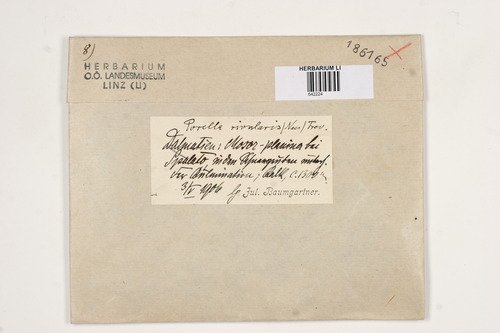 8)
186165
HERBARIUM
O.Ö. LANDESMUSEUM
LINZ (LI)
HERBARIUM LI
642224
Porella rivularis (Nees) Trev.
Dalmatien: Mosor-planina bei
Spalato in den Schneegruben
der Kulmination; Kalk, c. 1300 m
3/V 1906 lg. Jul. Baumgartner.